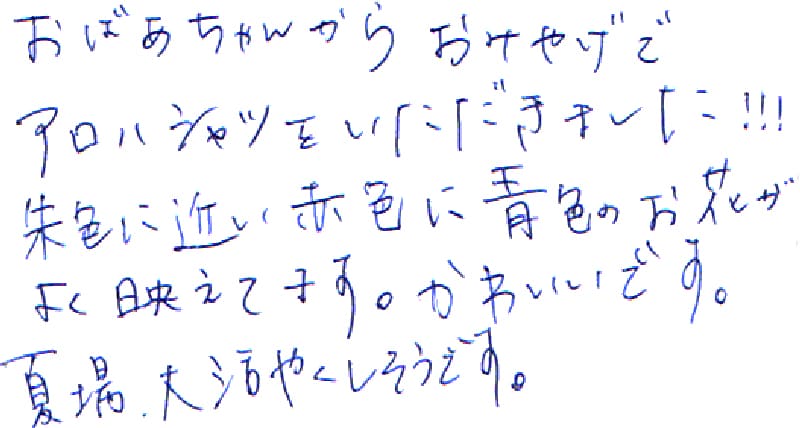 おばあちゃんからおみやげで
アロハシャツをいただきました!!!
朱色に近い赤色に青色のお花が
よく映えてます。かわいいです。
夏場、大活やくしそうです。